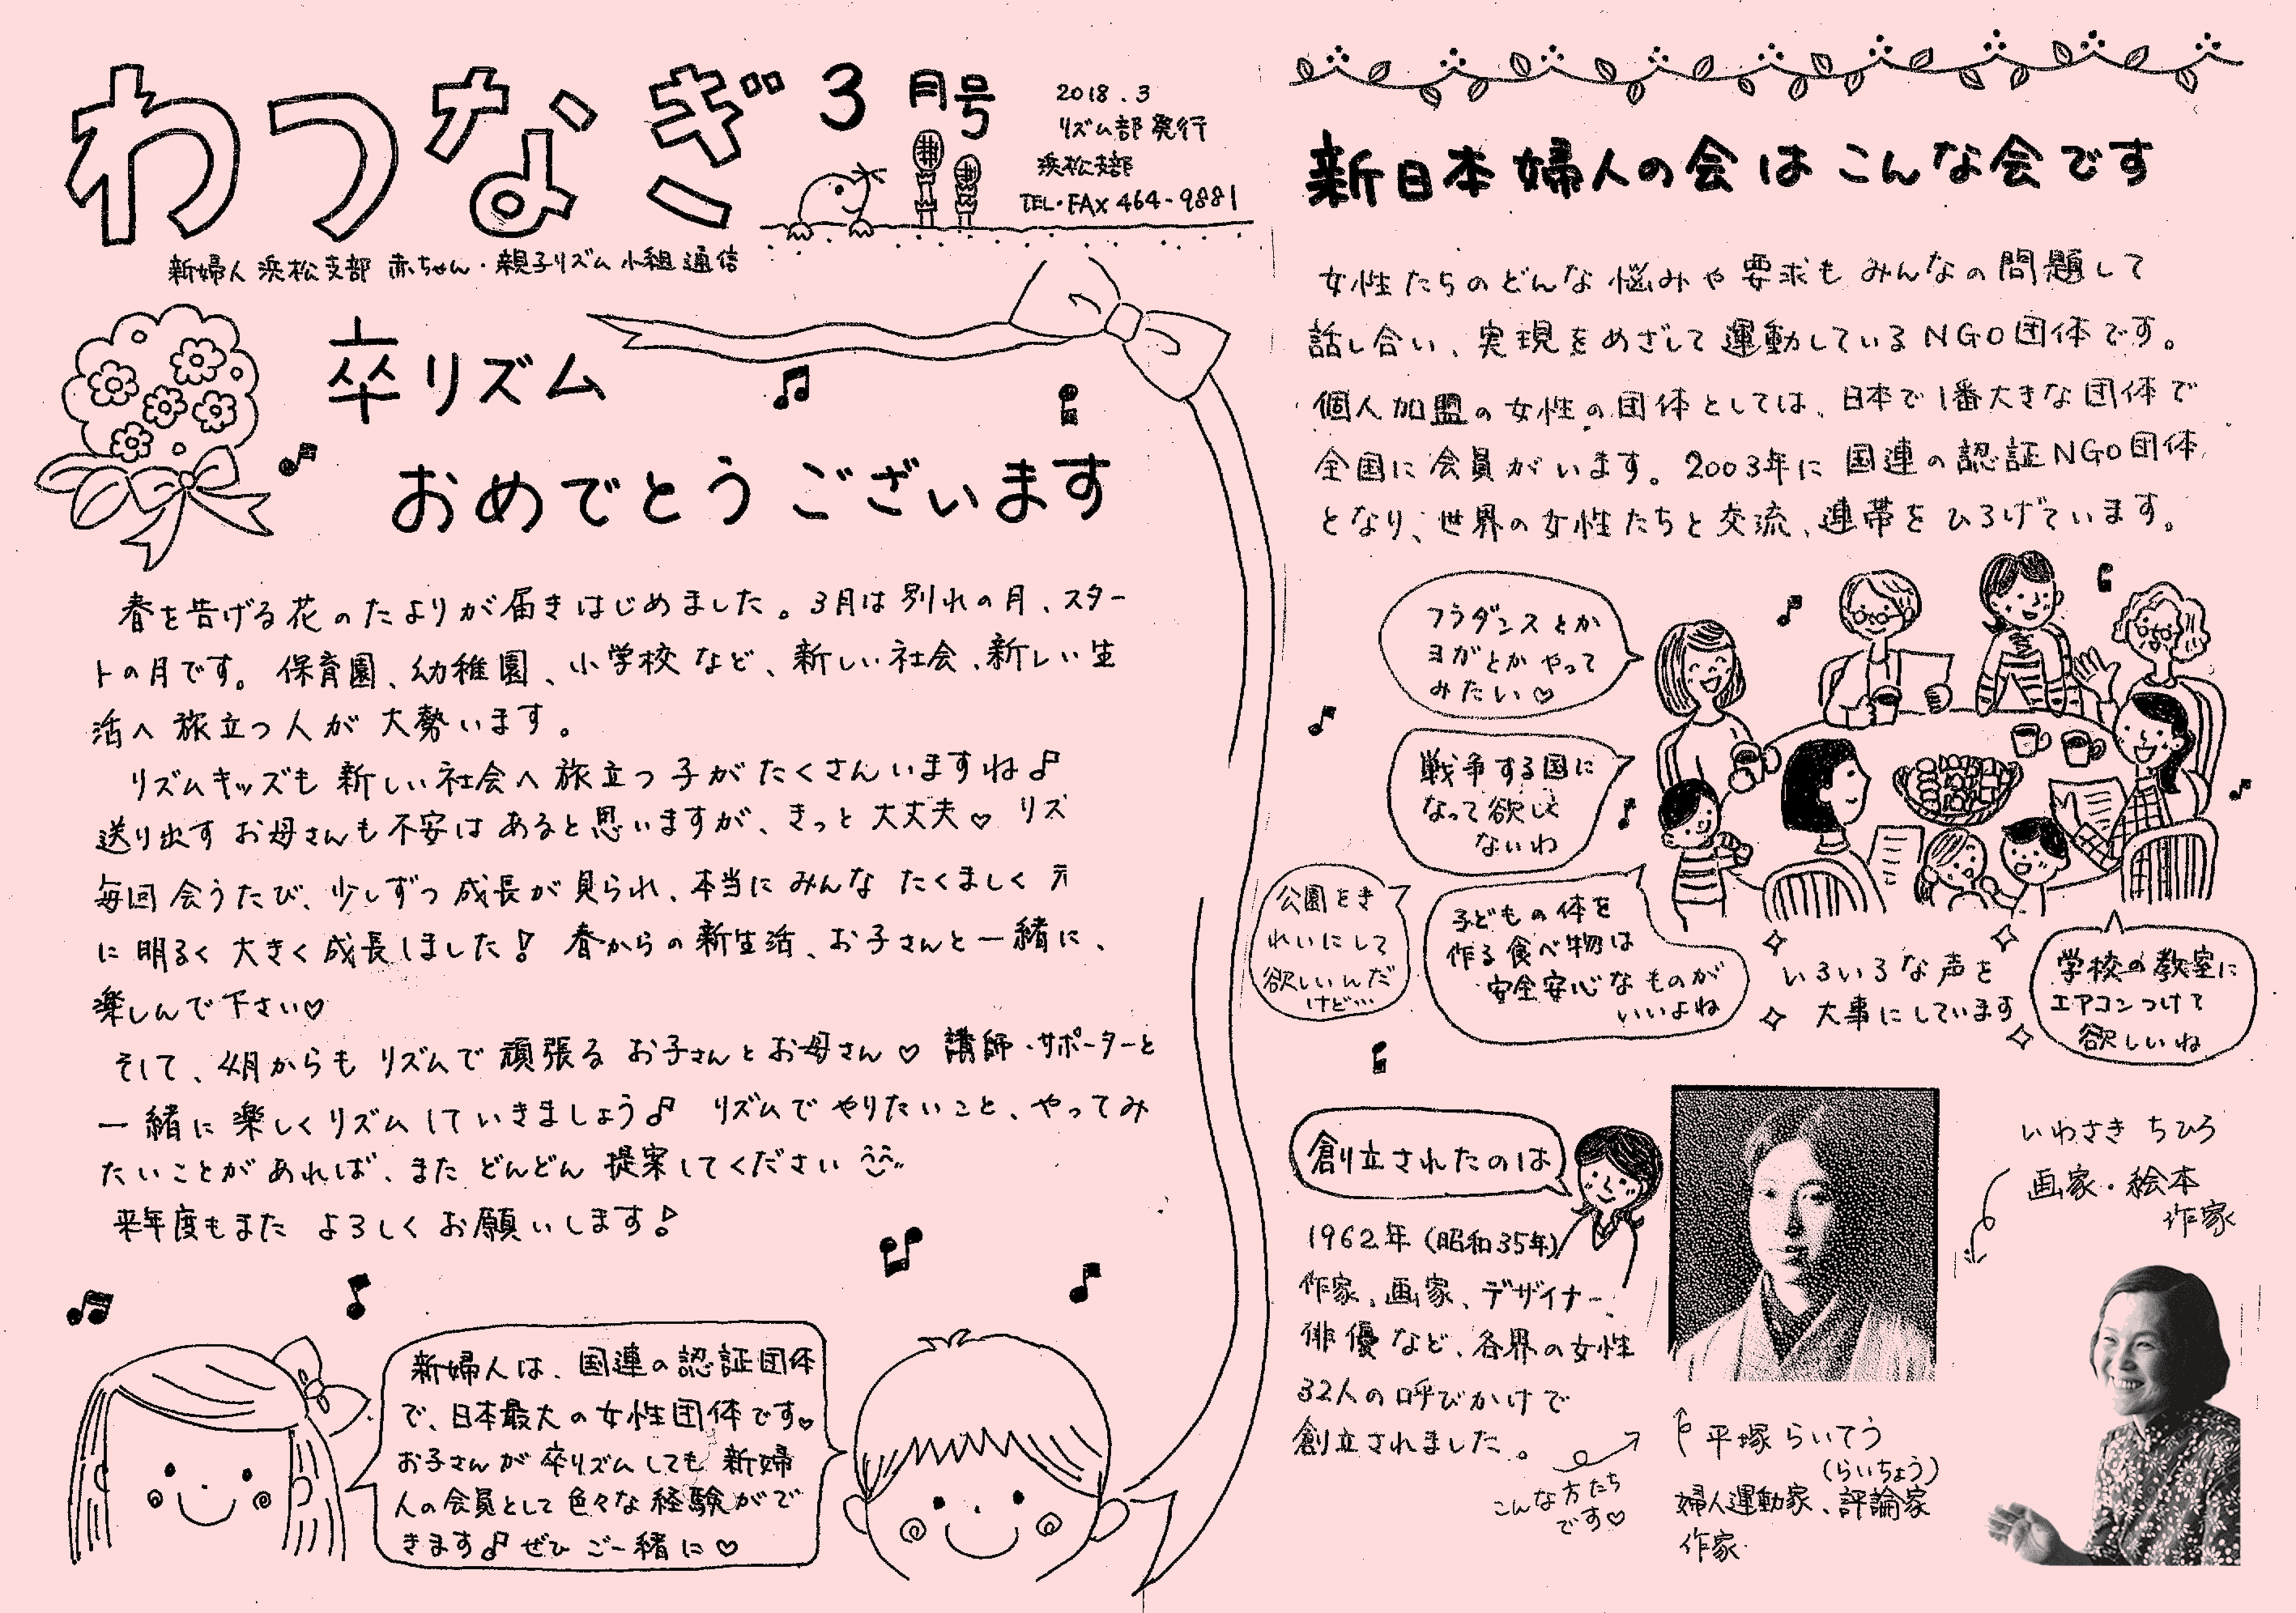 わつなぎ 3月号
2018.3
リズム部発行
浜松支部
TEL・FAX 464-9881
新婦人浜松支部 赤ちゃん・親子リズム小組通信
卒リズム
おめでとうございます
春を告げる花のたよりが届きはじめました。3月は別れの月、スター
トの月です。保育園、幼稚園、小学校など、新しい社会、新しい生
活へ旅立つ人が大勢います。
リズムキッズも新しい社会へ旅立つ子がたくさんいますね♪
送り出すお母さんも不安はあると思いますが、きっと大丈夫♡ リズ
毎回会うたび、少しずつ成長が見られ、本当にみんなたくましく元
に明るく大きく成長しました! 春からの新生活、お子さんと一緒に、
楽しんで下さい♡
そして、4月からもリズムで頑張るお子さんとお母さん♡ 講師・サポーターと
一緒に楽しくリズムしていきましょう♪ リズムでやりたいこと、やってみ
たいことがあれば、またどんどん提案してください
来年度もまたよろしくお願いします!
新婦人は、国連の認証団体
で、日本最大の女性団体です♡
お子さんが卒リズムしても新婦
人の会員として色々な経験がで
きます♪ぜひご一緒に♡
新日本婦人の会はこんな会です
女性たちのどんな悩みや要求もみんなの問題して
話し合い、実現をめざして運動しているNGO団体です。
個人加盟の女性の団体としては、日本で1番大きな団体で
全国に会員がいます。2003年に国連の認証NGO団体
となり、世界の女性たちと交流、連帯をひろげています。
フラダンスとか
ヨガとかやって
みたい♡
戦争する国に
なって欲しく
ないわ
公園をき
れいにして
欲しいんだ
けど…
子どもの体を
作る食べ物は
安全安心なものが
いいよね
いろいろな声を
大事にしています
学校の教室に
エアコンつけて
欲しいね
創立されたのは
1962年(昭和35年)
作家、画家、デザイナー、
俳優など、各界の女性
32人の呼びかけで
創立されました。
こんな方たち
です♡
平塚らいてう
(らいちょう)
婦人運動家、評論家
作家
いわさきちひろ
画家・絵本
作家